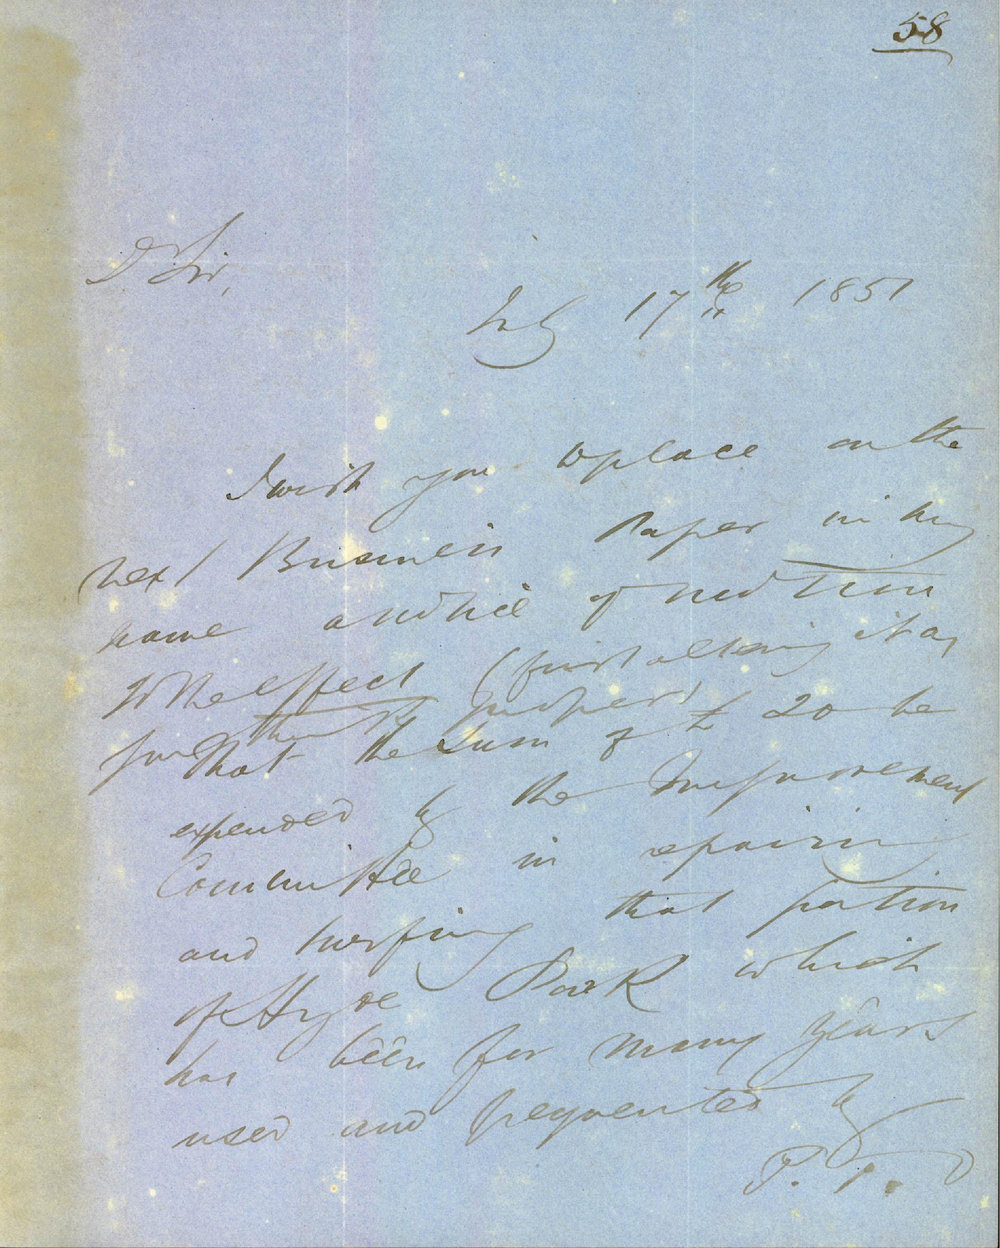 58
D. Sir,
July 17th 1851
I wish you to place on the
next Business Paper in my
name a notice of motion
to the effect (first altering it as
you think proper)
That the sum of £20 be
expended by the Improvement
Committee in repairing
and turfing that portion
of Hyde Park which
has been for many years
used and frequented by
P.T.O